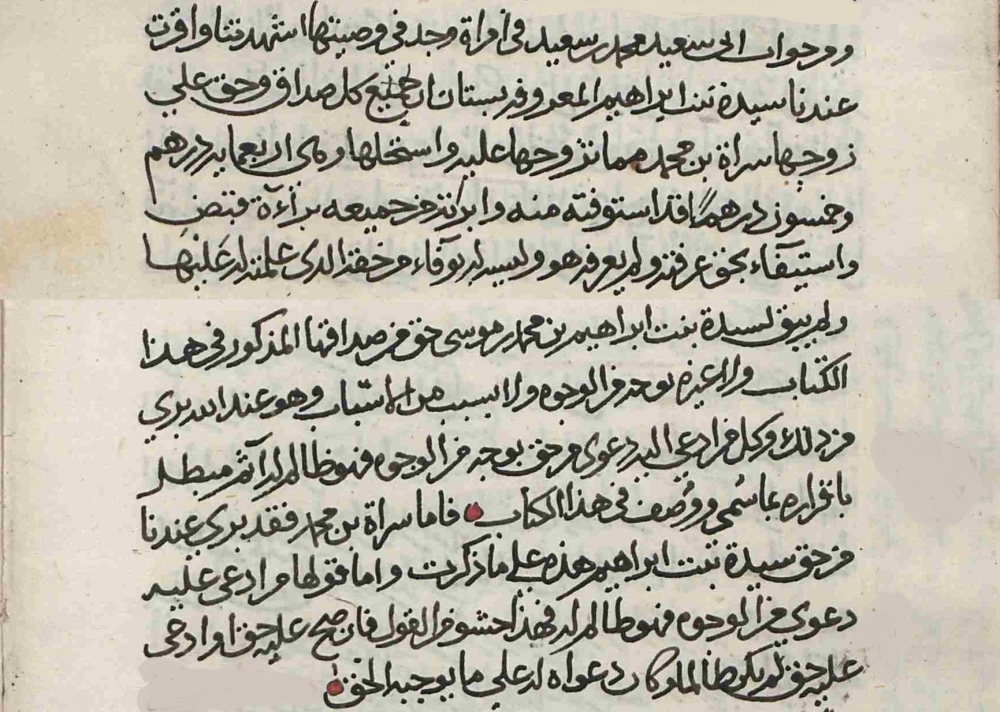 ومن جواب ابي سعيد محمد بن سعيد وفي امراة وجد في وصيتها اشهدتنا واقرت
عندنا سيدة بنت ابراهيم المعروف بستان ان جميع كل صداق وحق علي
زوجها سراة بن محمد مما تزوجها عليه واستحلها وهي اربعماية درهم
وخمسون درهمًا قد استوفته منه وابرأته من جميعه برآءة قبض
واستيفآء بحق عرفته ولم يعرفه هو وليس له توفاء من حقه الذي علمته له عليها
ولم يبق لسيدة بنت ابراهيم بن محمد بن موسى حق من صداقها المذكور في هذا
الكتاب ولا غيره بوجه من الوجوه ولا بسبب من الاسباب وهو عند الله بري
من ذلك وكل من ادعى اليه دعوى من حق بوجه من الوجوه فهو ظالم له آثم مبطل
باقراره بما سُمي ووُصف في هذا الكتاب فاما سراة بن محمد فقد بري عندنا
من حق سيدة بنت ابراهيم هذه على ما ذكرت واما قولها من ادعى عليه
دعوى من الوجوه فهو ظالم له فهذا حشو من القول فان صح عليه حق او ادعى
عليه حق لم يكن ظالما وكان دعواه له على ما يوجبه الحق